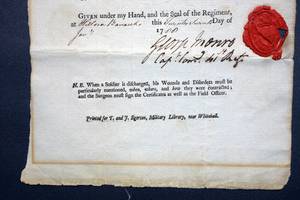 GIVEN under my Hand, and the Seal of the Regiment,
at Barracks this Day of
17
George Monro
N. B. When a Soldier is discharged, his Wounds and Disorders must be
particularly mentioned, when, where, and how they were contracted;
and the Surgeon must sign the Certificates as well as the Field Officer.
Printed for T. and J. Egerton, Military Library, near Whitehall.